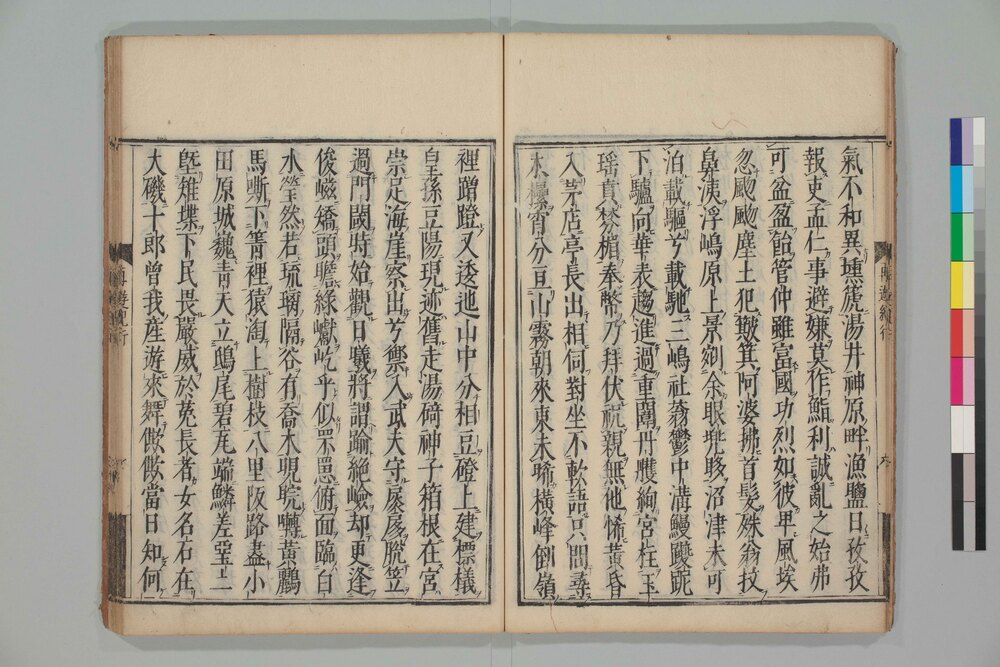 氣不和異壎篪湯井神原畔漁鹽日孜孜
報吏孟仁事避嫌莫作鮨利誠亂之始弗
可盆盆飴管仲雖富國功烈如彼卑風埃
忽颲颲塵土犯簸箕阿婆拂首髮殊翁技
鼻洟浮嶋原上景剜余眼兜眵沼津未可
泊載驅兮載馳三嶋社蓊鬱中溝鰻
下驢向華表趨進過重闈丹雘絢宮柱玉
瑶真棼楣奉幣乃拜伏祝親無他悕黄昏
入茅店亭長出相伺對坐不軟語只問尋
木櫐宵分亘山霧朝來東未晞橫峰倒嶺
裡蹭蹬又逶迆山中分相豆磴上建標檥
皇孫豆陽現迹舊走湯碕神子箱根在宮
崇足海崖察出兮禦入武夫守扆脫笠
過門閾時始觀日曦將謂踰絶嶮却更逢
俊嵫矯頭瞻綠巘屹乎似罘罳俯面臨白
水瑩然若琉璃隔谷有喬木晛睆囀黃鸝
馬嘶下箐裡猿淘上樹枝八里阪路盡小
田原城巍青天立鴟尾碧瓦耑鱗差堊
塈雉堞下民畏嚴威於菟長者女名石在
大磯十郎曾我産遊來舞僛僛當日知何